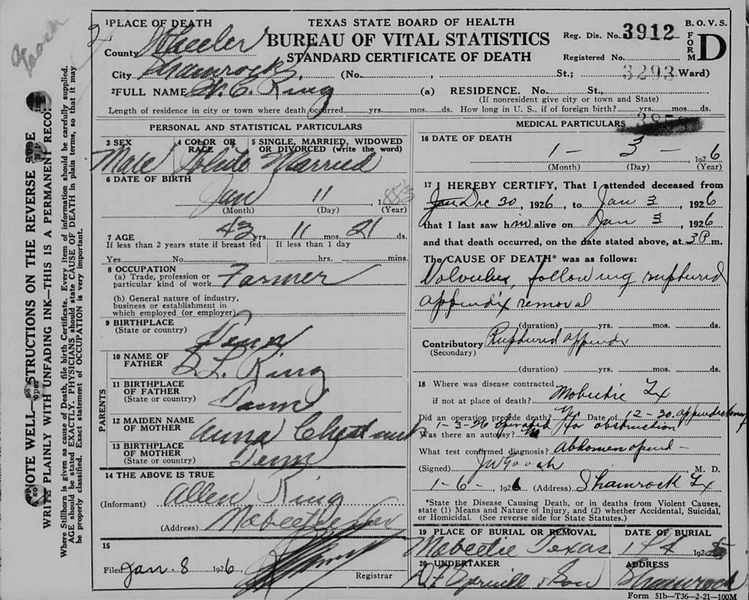 TEXAS STATE BOARD OF HEALTH
BUREAU OF VITAL STATISTICS
STANDARD CERTIFICATE OF DEATH
Reg. Dis. No. 3912
Registered No. 3293
B. O. V. S.
FORM D
1 PLACE OF DEATH
County Wheeler
City Shamrock (No. St.; Ward)
2 FULL NAME King (a) RESIDENCE. No. St.
(If nonresident give city or town and State)
Length of residence in city or town where death occurred yrs. mos. ds. How long in U. S., if of foreign birth? yrs. mos. ds.
PERSONAL AND STATISTICAL PARTICULARS
3 SEX 4 COLOR OR RACE 5 SINGLE, MARRIED, WIDOWED OR DIVORCED (write the word)
Male White Married
6 DATE OF BIRTH
Jan 11
(Month) (Day) (Year)
7 AGE 43 yrs. 11 mos. 21 ds.
If less than 2 years state if breast fed If less than 1 day
Yes No hrs. min.
8 OCCUPATION
(a) Trade, profession or particular kind of work Farmer
(b) General nature of industry, business or establishment in which employed (or employer)
9 BIRTHPLACE
(State or country) Tenn
10 NAME OF FATHER L. King
11 BIRTHPLACE OF FATHER
(State or country) Tenn
12 MAIDEN NAME OF MOTHER Anna
13 BIRTHPLACE OF MOTHER
(State or country) Tenn
PARENTS
14 THE ABOVE IS TRUE
(Informant) Allen King
(Address)
15
Filed Jan. 8 1926 Registrar
MEDICAL PARTICULARS
16 DATE OF DEATH
1 - 3 - 1926
(Month) (Day) (Year)
17 I HEREBY CERTIFY, That I attended deceased from
Dec 30, 1926, to Jan 3, 1926
that I last saw him alive on Jan 3, 1926
and that death occurred, on the date stated above, at 3 P. m.
The CAUSE OF DEATH* was as follows:
Volvulus, following ruptured
appendix removal
(duration) yrs. mos. ds.
Contributory Ruptured appendix
(Secondary)
(duration) yrs. mos. ds.
18 Where was disease contracted
if not at place of death? Mobeetie Tx
Did an operation precede death? Date of 12-30. appendectomy
1-3-26 operated for obstruction
Was there an autopsy? No
What test confirmed diagnosis? Abdomen opened
(Signed) M. D.
1-6-, 1926 (Address) Shamrock Tx
*State the Disease Causing Death, or in deaths from Violent Causes, state (1) Means and Nature of Injury, and (2) whether Accidental, Suicidal, or Homicidal. (See reverse side for State Statutes.)
19 PLACE OF BURIAL OR REMOVAL DATE OF BURIAL
Mobeetie Texas
20 UNDERTAKER ADDRESS
& Son Shamrock
Form 51b-T36-2-21-100M
NOTE WELL—INSTRUCTIONS ON THE REVERSE SIDE
WRITE PLAINLY WITH UNFADING INK—THIS IS A PERMANENT RECORD
Where Stillborn is given as cause of Death, file birth Certificate. Every item of information should be carefully supplied.
AGE should be stated EXACTLY. PHYSICIANS should state CAUSE OF DEATH in plain terms, so that it may
be properly classified. Exact statement of OCCUPATION is very important.